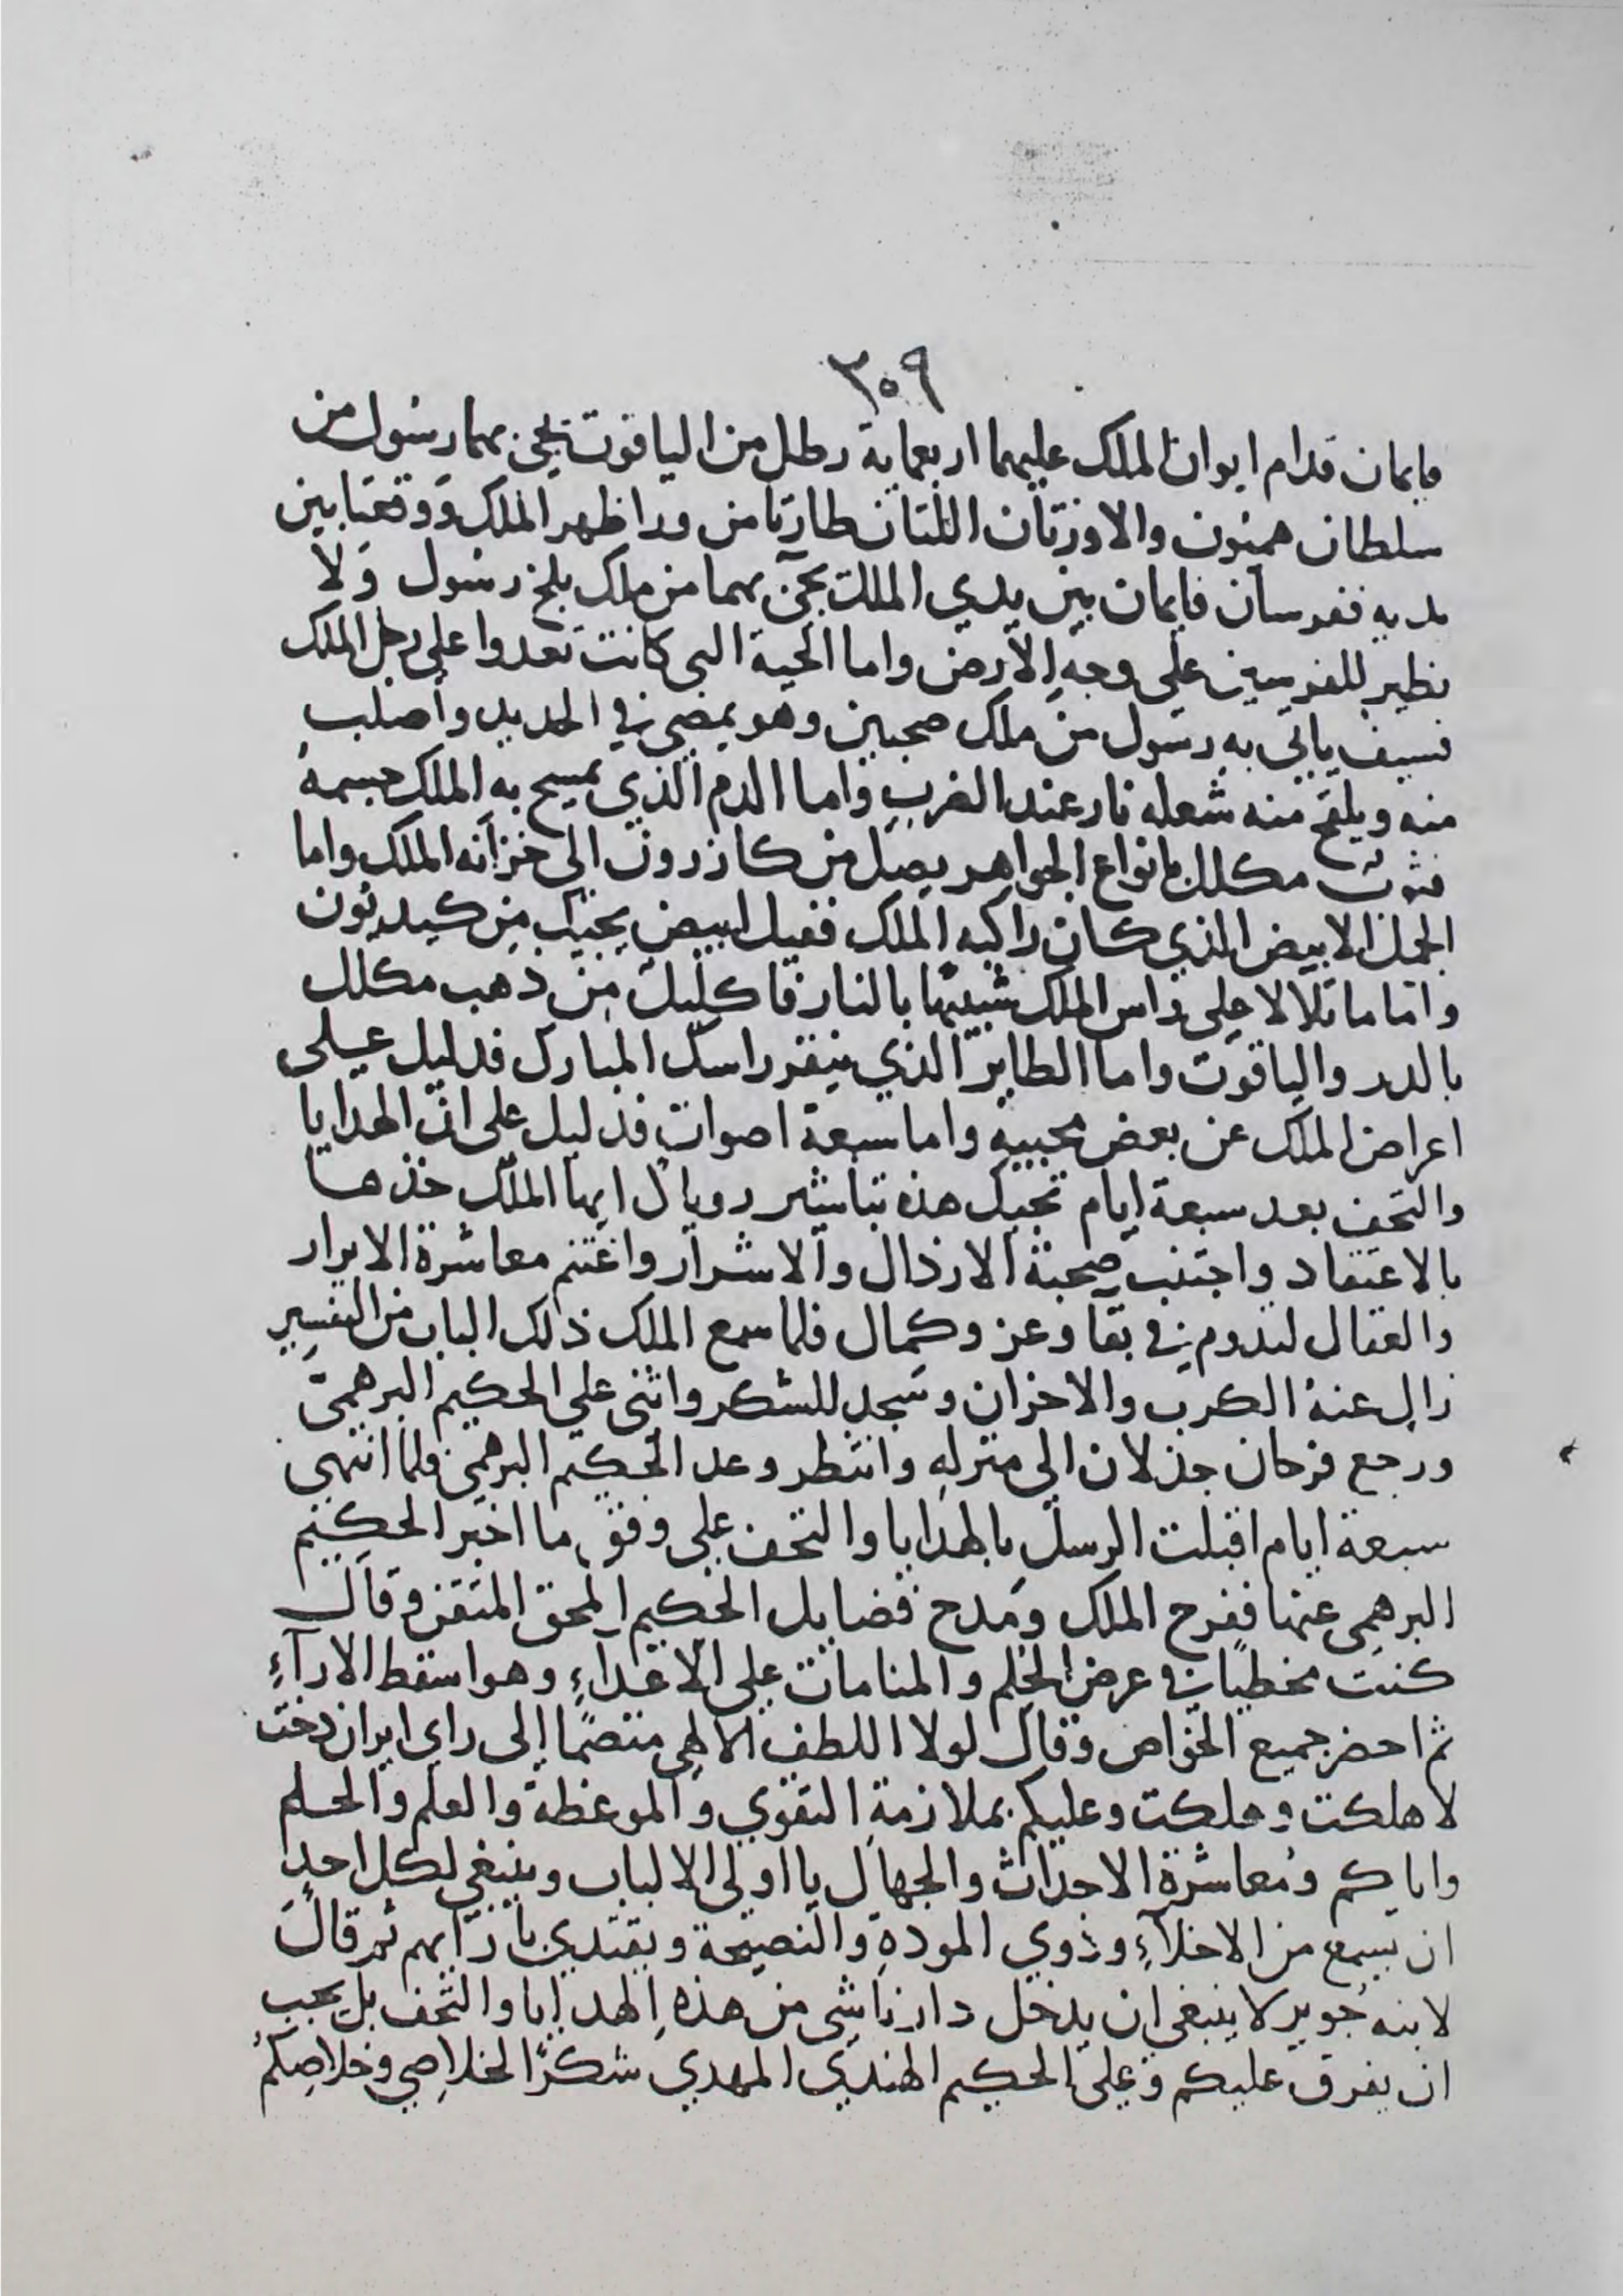 ٣٠٩
قايمان قدام ايوان الملك عليهما اربعماية رطل من الياقوت يجي بهما رسول من
سلطان هميون والاوزتان اللتان طارتا من ورا ظهر الملك ووقعتا بين
يديه ففرسان قايمان بين يدي الملك يجئ بهما من ملك بلخ رسول ولا
نظير للفرسين على وجه الارض واما الحية التى كانت تعدوا على رجل الملك
فسيف ياتى به رسول من ملك صحبين وهو يمضى فى الحديد واصلب
منه ويلقح منه شعله نار عند الضرب واما الدم الذي يمسح به الملك جسمه
فثوب مكلل بانواع الجواهر يصل من كازرون الى خزانه الملك واما
الجمل الابيض الذي كان راكبه الملك ففيل ابيض يجيك من كيدنون
واما ما تلالا على راس الملك شبيها بالنار فاكليل من ذهب مكلل
بالدرر والياقوت واما الطاير الذي ينقر راسك المبارك فدليل على
اعراض الملك عن بعض محبيه واما سبعة اصوات فدليل على ان الهدايا
والتحف بعد سبعة ايام تجيك هذه تباشير روياك ايها الملك خذها
بالاعتقاد واجتنب صحبة الارذال والاشرار واغتنم معاشرة الابرار
والعقال لتدوم فى بقا وعز وكمال فلما سمع الملك ذلك الباب من التفسير
زال عنه الكرب والاحزان وسجد للشكر واثنى علي الحكيم البرهمىّ
ورجع فرحان جذلان الى منزله وانتظر وعد الحكيم البرهمى فلما انتهى
سبعة ايام اقبلت الرسل بالهدايا والتحف على وفق ما اخبر الحكيم
البرهمى عنها ففرح الملك ومدح فضايل الحكيم المحق المتقن وقال
كنت مخطيا فى عرض الحلم والمنامات على الاعدآء وهو اسقط الارآء
ثم احضر جميع الخواص وقال لولا اللطف الالهى منضمًا إلى راى ايران دخت
لاهلكت وهلكت وعليكم بملازمة التقوي والموعظة والعلم والحلم
واياكم ومعاشرة الاحداث والجهال يا اولى الالباب وينبغى لكل احد
ان يسمع من الاخلآء وذوي المودة والنصيحة ويقتدي بارآيهم ثم قال
لابنه جوبر لا ينبغى ان يدخل دارنا شى من هذه الهدايا والتحف بل يجب
ان يفرق عليكم وعلى الحكيم الهندى المهدي شكرًا لخلاصي وخلاصكم